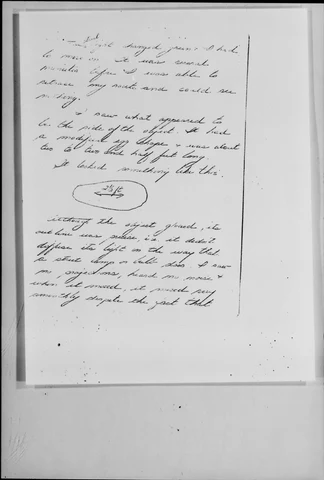 light changed green & I had
to move on. It was several
minutes before I was able to
retrace my route and could see
nothing.
I now what appeared to
be the side of the object. It had
a modified egg shape & was about
two to two and half feet long
It looked something like this.
2½ft
the object glowed, its
outline was
diffuse its light in the way that
a street lamp or bulb does. I saw
no projections, heard no noise &
when it moved, it moved very
smoothly despite the fact that